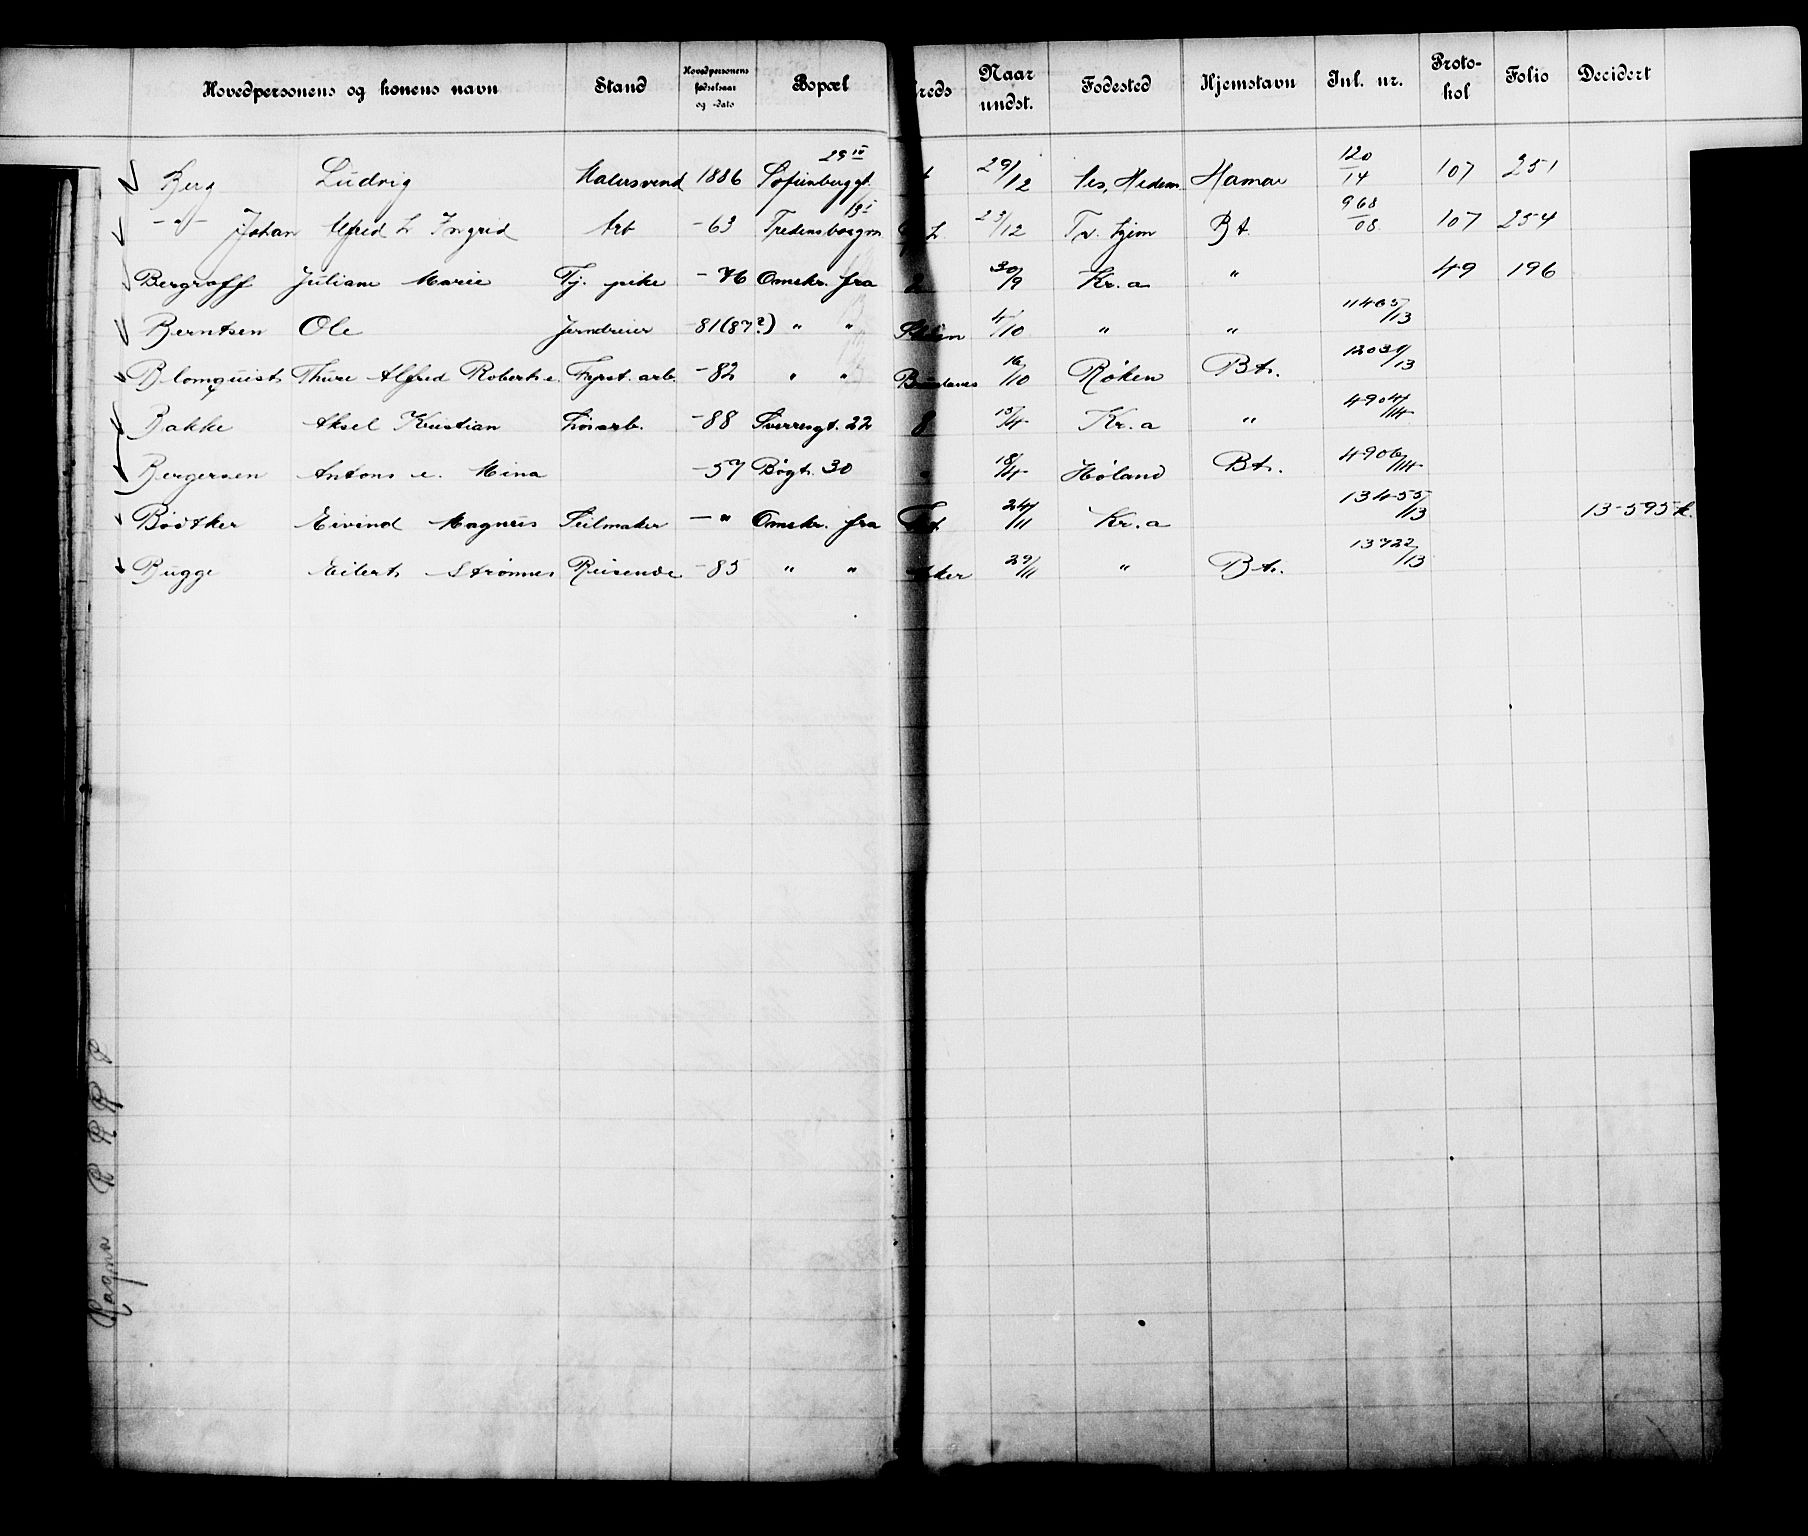 Hovedpersonens og konens navn Stand Hovedpersonens fødselsaar og -dato Bopæl kreds Naar undst. Fødested Hjemstavn Inl. nr. Proto-kol Folio Decidert
Berg Ludvig Malersvend 1886 Sofienberggt. 29 IV 29/12 Hedem Hamar 120/14 107 251
-"- Johan Alfred h Ingrid Arb -63 Fredensborgvn 13 I 23/12 Tv. hjem Bt. 968/08 107 254
Bergraff Juliane Marie Tj. pike -76 Omskr. fra 2 30/9 Kr.a " 49 196
Berntsen Ole Jerndreier -81 (87?) " " 4/10 " " 11405/13
Blomquist Thure Alfred Robert e. Fyrst. arb. -82 " " 16/10 Røken Bt. 12031/13
Bakke Aksel Kristian Løsarb. -88 Sverresgt. 22 8 15/4 Kr.a " 4904/14
Bergersen Antons e. Mina -57 Bøgt. 30 " 18/4 Høland Bt. 4906/14
Bødtker Eivind Magnus Seilmaker -" Omskr. fra 24/11 Kr.a 13455/13 13-595 k.
Bugge Eilert Strømnes Reisende -85 " " Aker 29/11 " Bt. 13722/13
Ragna R R R R